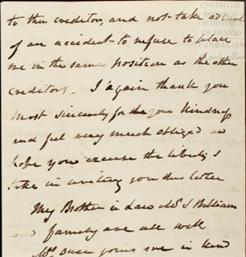 to the creditors and not take ad
of an accident to refuse to place
me in the same position as the other
creditors. I again thank you
most sincerely for the your kindness
and feel very much obliged and
hope you excuse the liberty I
take in writing you this letter
My Brother in Law Mr S William
and family are all well
Mrs joins me in kind